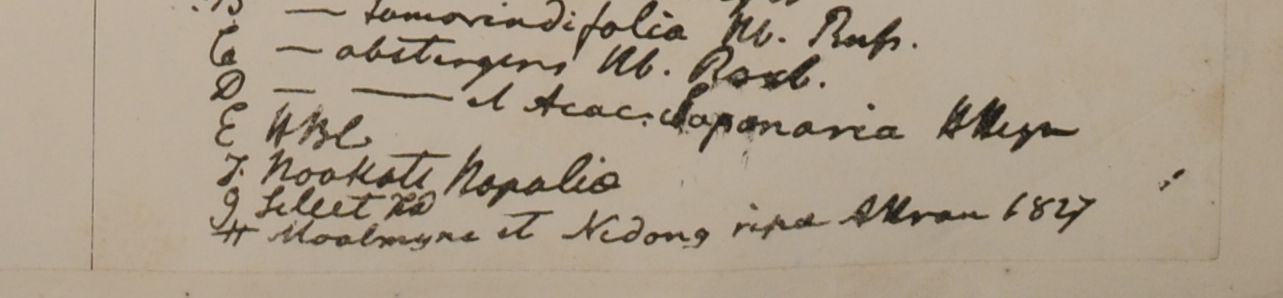 B — tamarindifolia Hb. Russ.
C — abstergens Hb. Roxb.
D — —— et Acac. Saponaria H Heyn
E HBC
F. Nookote Napalia
G Sillet
H Moalmyne et Nidong ripa Attran 1827